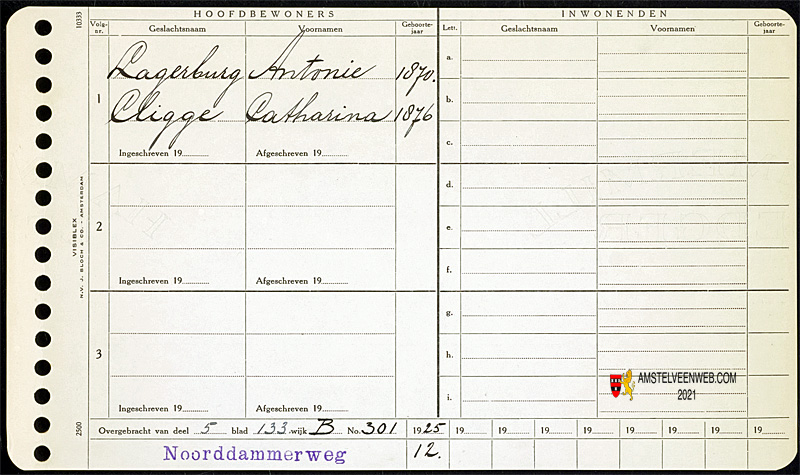 HOOFDBEWONERS
INWONENDEN
10333
Volg-nr. Geslachtsnaam Voornamen Geboorte-jaar
Lett. Geslachtsnaam Voornamen Geboorte-jaar
1
Lagerburg Antonie 1870.
Cligge Catharina 1876
Ingeschreven 19 Afgeschreven 19
2
Ingeschreven 19 Afgeschreven 19
3
Ingeschreven 19 Afgeschreven 19
a.
b.
c.
d.
e.
f.
g.
h.
i.
VISIBLEX
N.V. J. BLOCH & CO. - AMSTERDAM
2500
AMSTELVEENWEB.COM
2021
Overgebracht van deel 5 blad 133 wijk B No. 301 1925 19 19 19 19 19 19 19 19
Noorddammerweg 12.